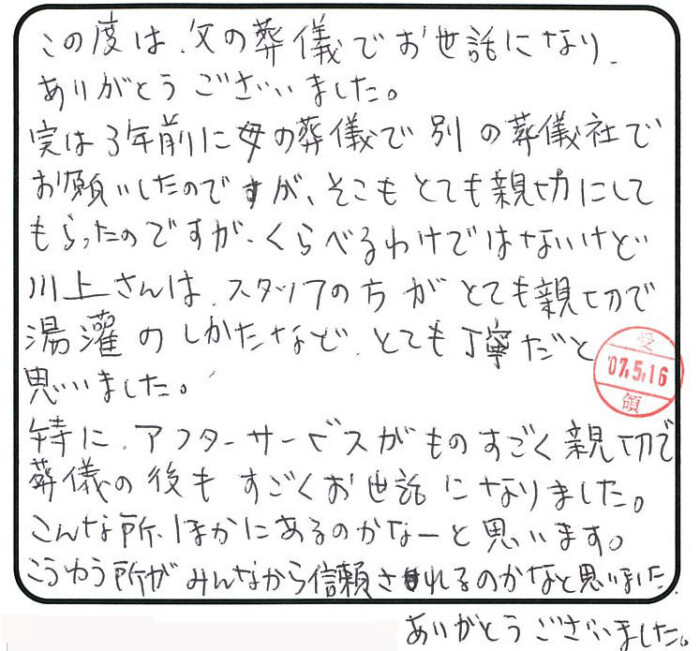 この度は、父の葬儀でお世話になり、
ありがとうございました。
実は3年前に母の葬儀で別の葬儀社で
お願いしたのですが、そこもとても親切にして
もらったのですが、くらべるわけではないけど
川上さんは、スタッフの方がとても親切で
湯灌のしかたなど、とても丁寧だと
思いました。
受
'07.5.16
領
特に、アフターサービスがものすごく親切で
葬儀の後もすごくお世話になりました。
こんな所、ほかにあるのかなーと思います。
こうゆう所がみんなから信頼されるのかなと思いました
ありがとうございました。